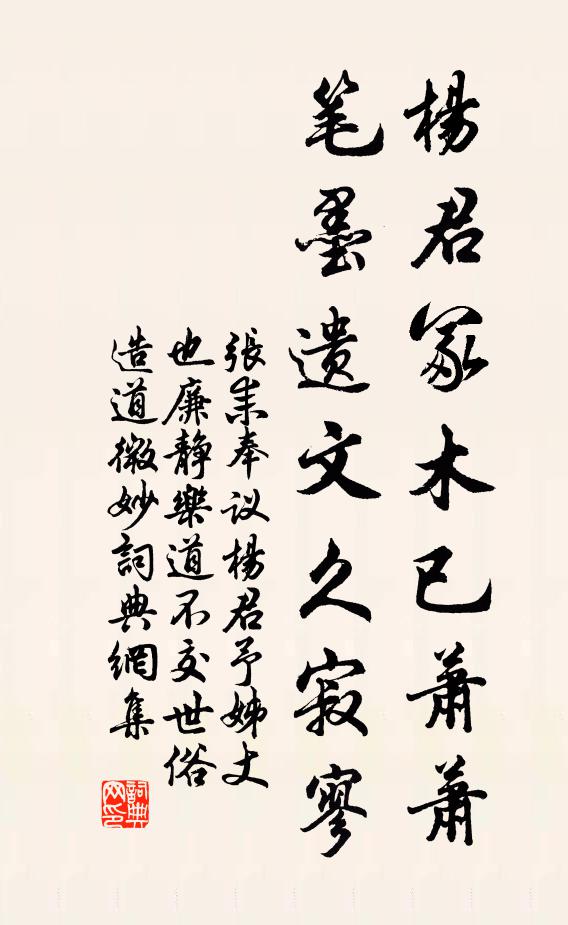 楊君冢木已蕭蕭
笔墨遗文久寂寥
張耒奉议楊君予姊丈
也廉静樂道不交世俗
造道微妙詞典網集
詞典网印